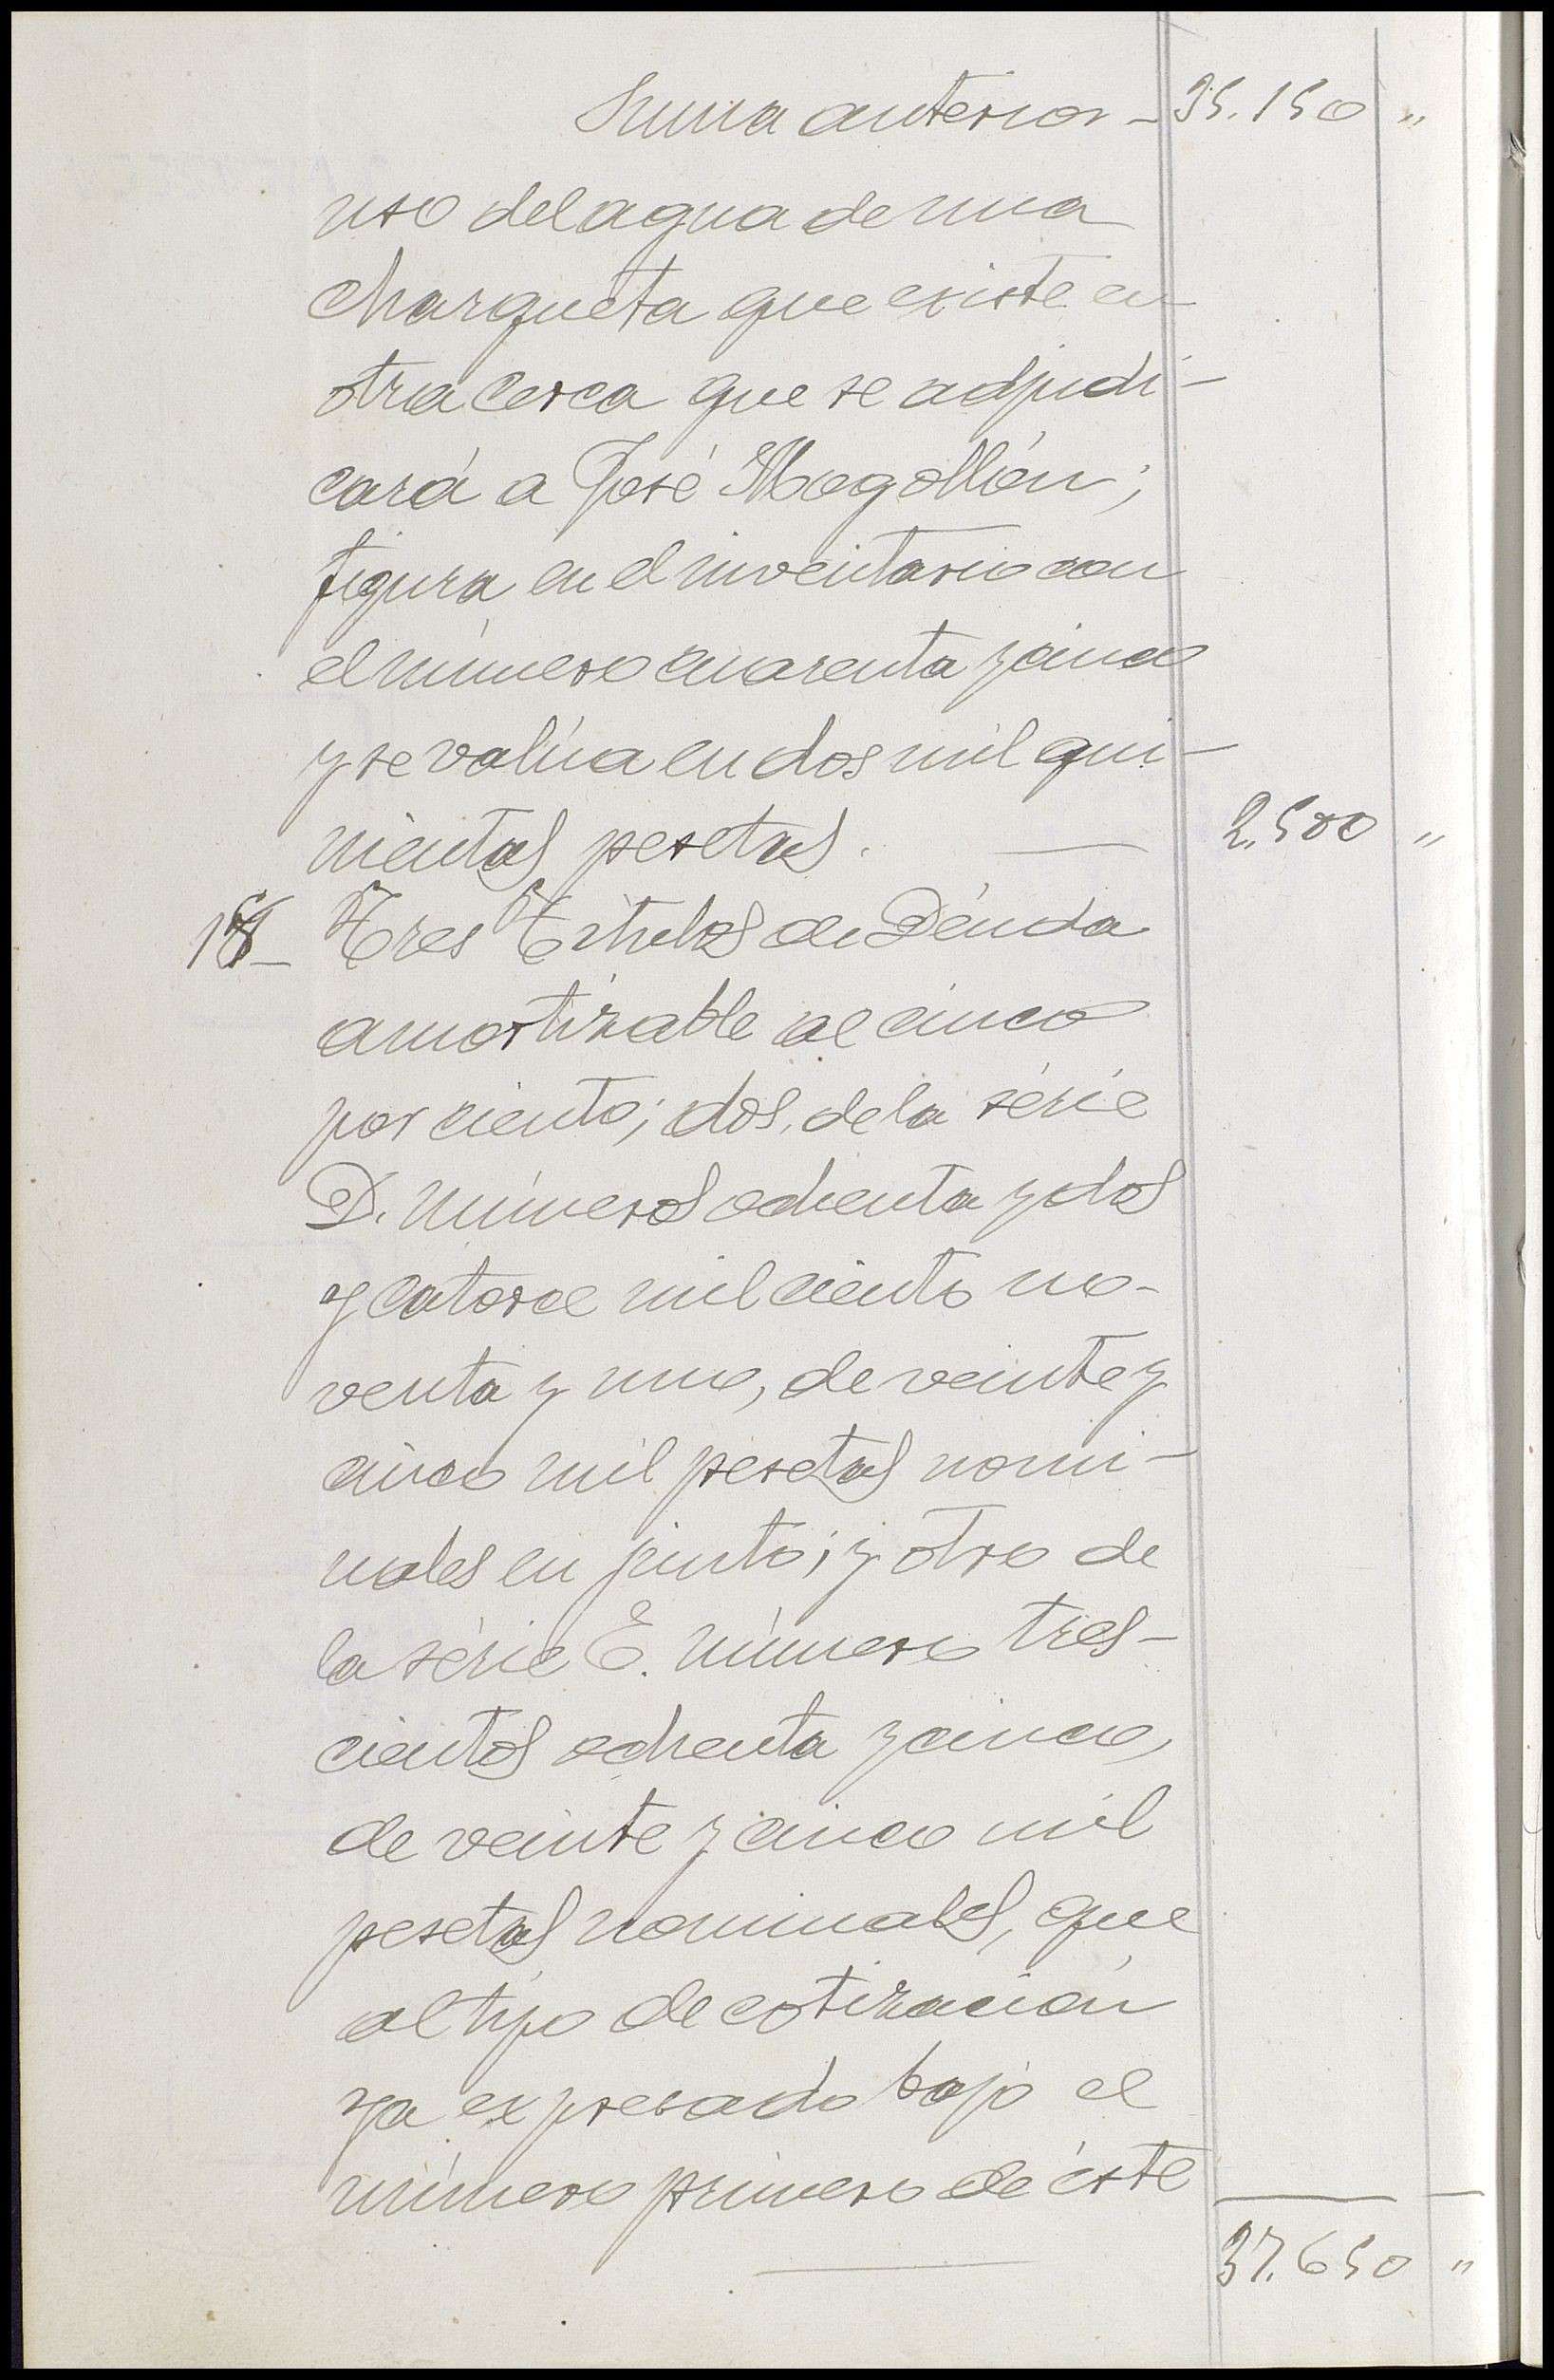 Suma anterior - 35.150 "
uso del agua de una
charqueta que existe en
otra cerca que se adjudi-
cará a José Mogollón;
figura en el inventario con
el número cuarenta y cinco
y se valúa en dos mil qui-
nientas pesetas. — 2.500 "
18- Tres Titulos de Déuda
amortizable al cinco
por ciento; dos, de la série
D. números ochenta y dos
y catorce mil ciento no-
venta y uno, de veinte y
cinco mil pesetas nomi-
nales en junto; y otro de
la série E. número tres-
cientos ochenta y cinco,
de veinte y cinco mil
pesetas nominales, que
al tipo de cotización
ya expresado bajo el
número primero de éste
37.650 "